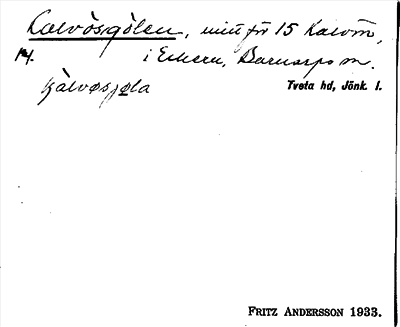 Kalvösgölen, mitt för 15 Kalvön,
14. i Eckern, Barnarps sn.
kàlvøsjøla Tveta hd, Jönk. l.
FRITZ ANDERSSON 1933.